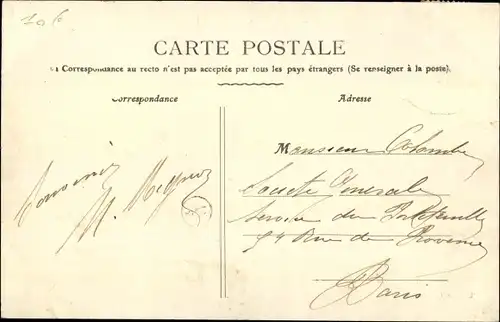 CARTE POSTALE
Correspondance au recto n'est pas acceptée par tous les pays étrangers (Se renseigner à la poste).
orrespondance
Adresse
Monsieur Colomb
Société Générale
Service du Portefeuille
54 Rue de Provence
Paris
Souvenir